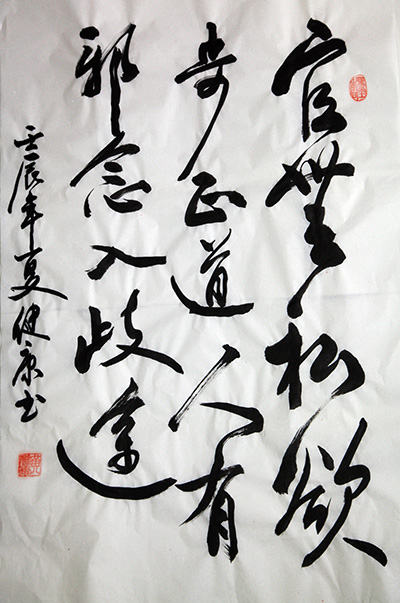 官無私欲
步正道人有
邪念入歧途
壬辰年夏健康书